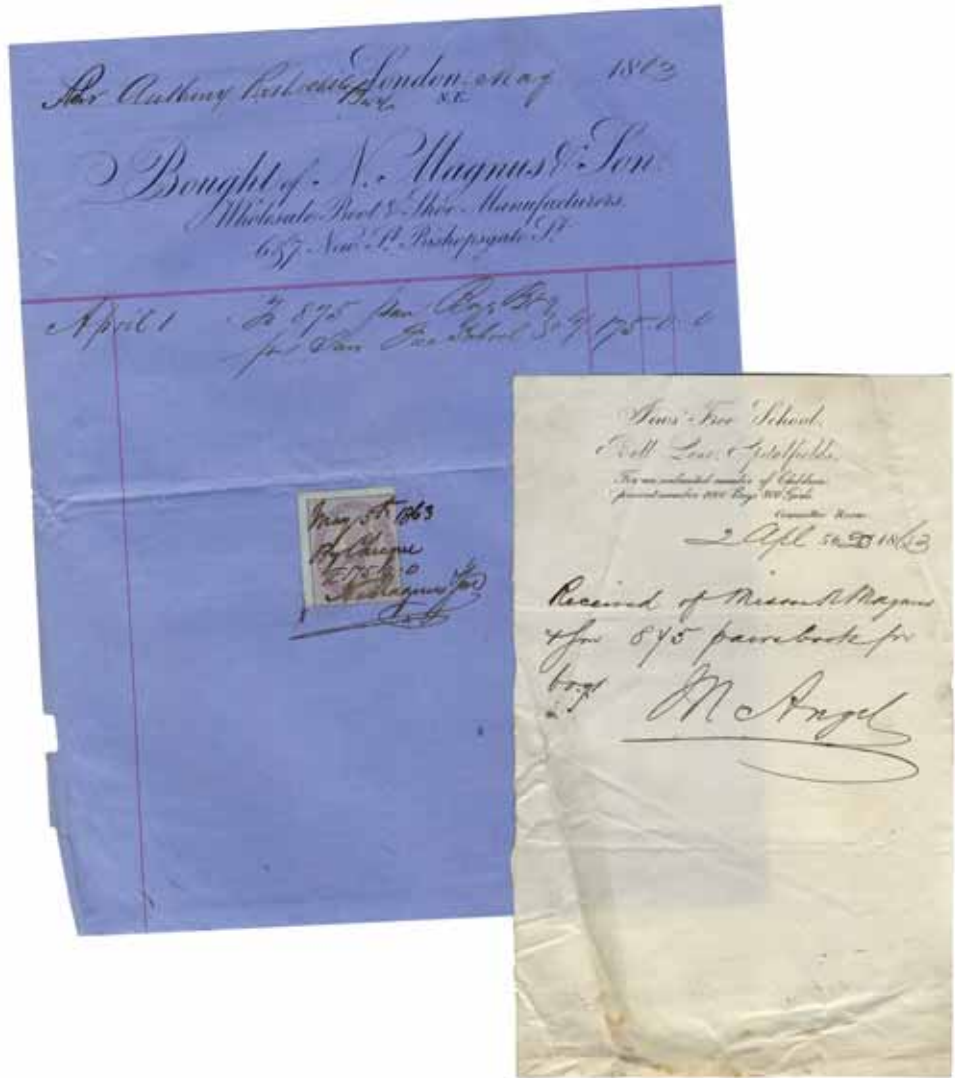 Sir Anthony London, May 1863
N.E.
Bought of N. Magnus & Son
Wholesale Boot & Shoe Manufacturers
6 & 7 New St. Bishopsgate St.
April 1 To 875 pair Boys
for Jews Free School 175 0 0
May 5th 1863
By Cheque
£175 0 0
N Magnus & Son
Jews' Free School,
Bell Lane, Spitalfields,
For an unlimited number of Children
present number Boys Girls
Committee Room
2 Apl 1863
Received of Messrs N Magnus
& Son 875 pairs boots for
boys
M Angel